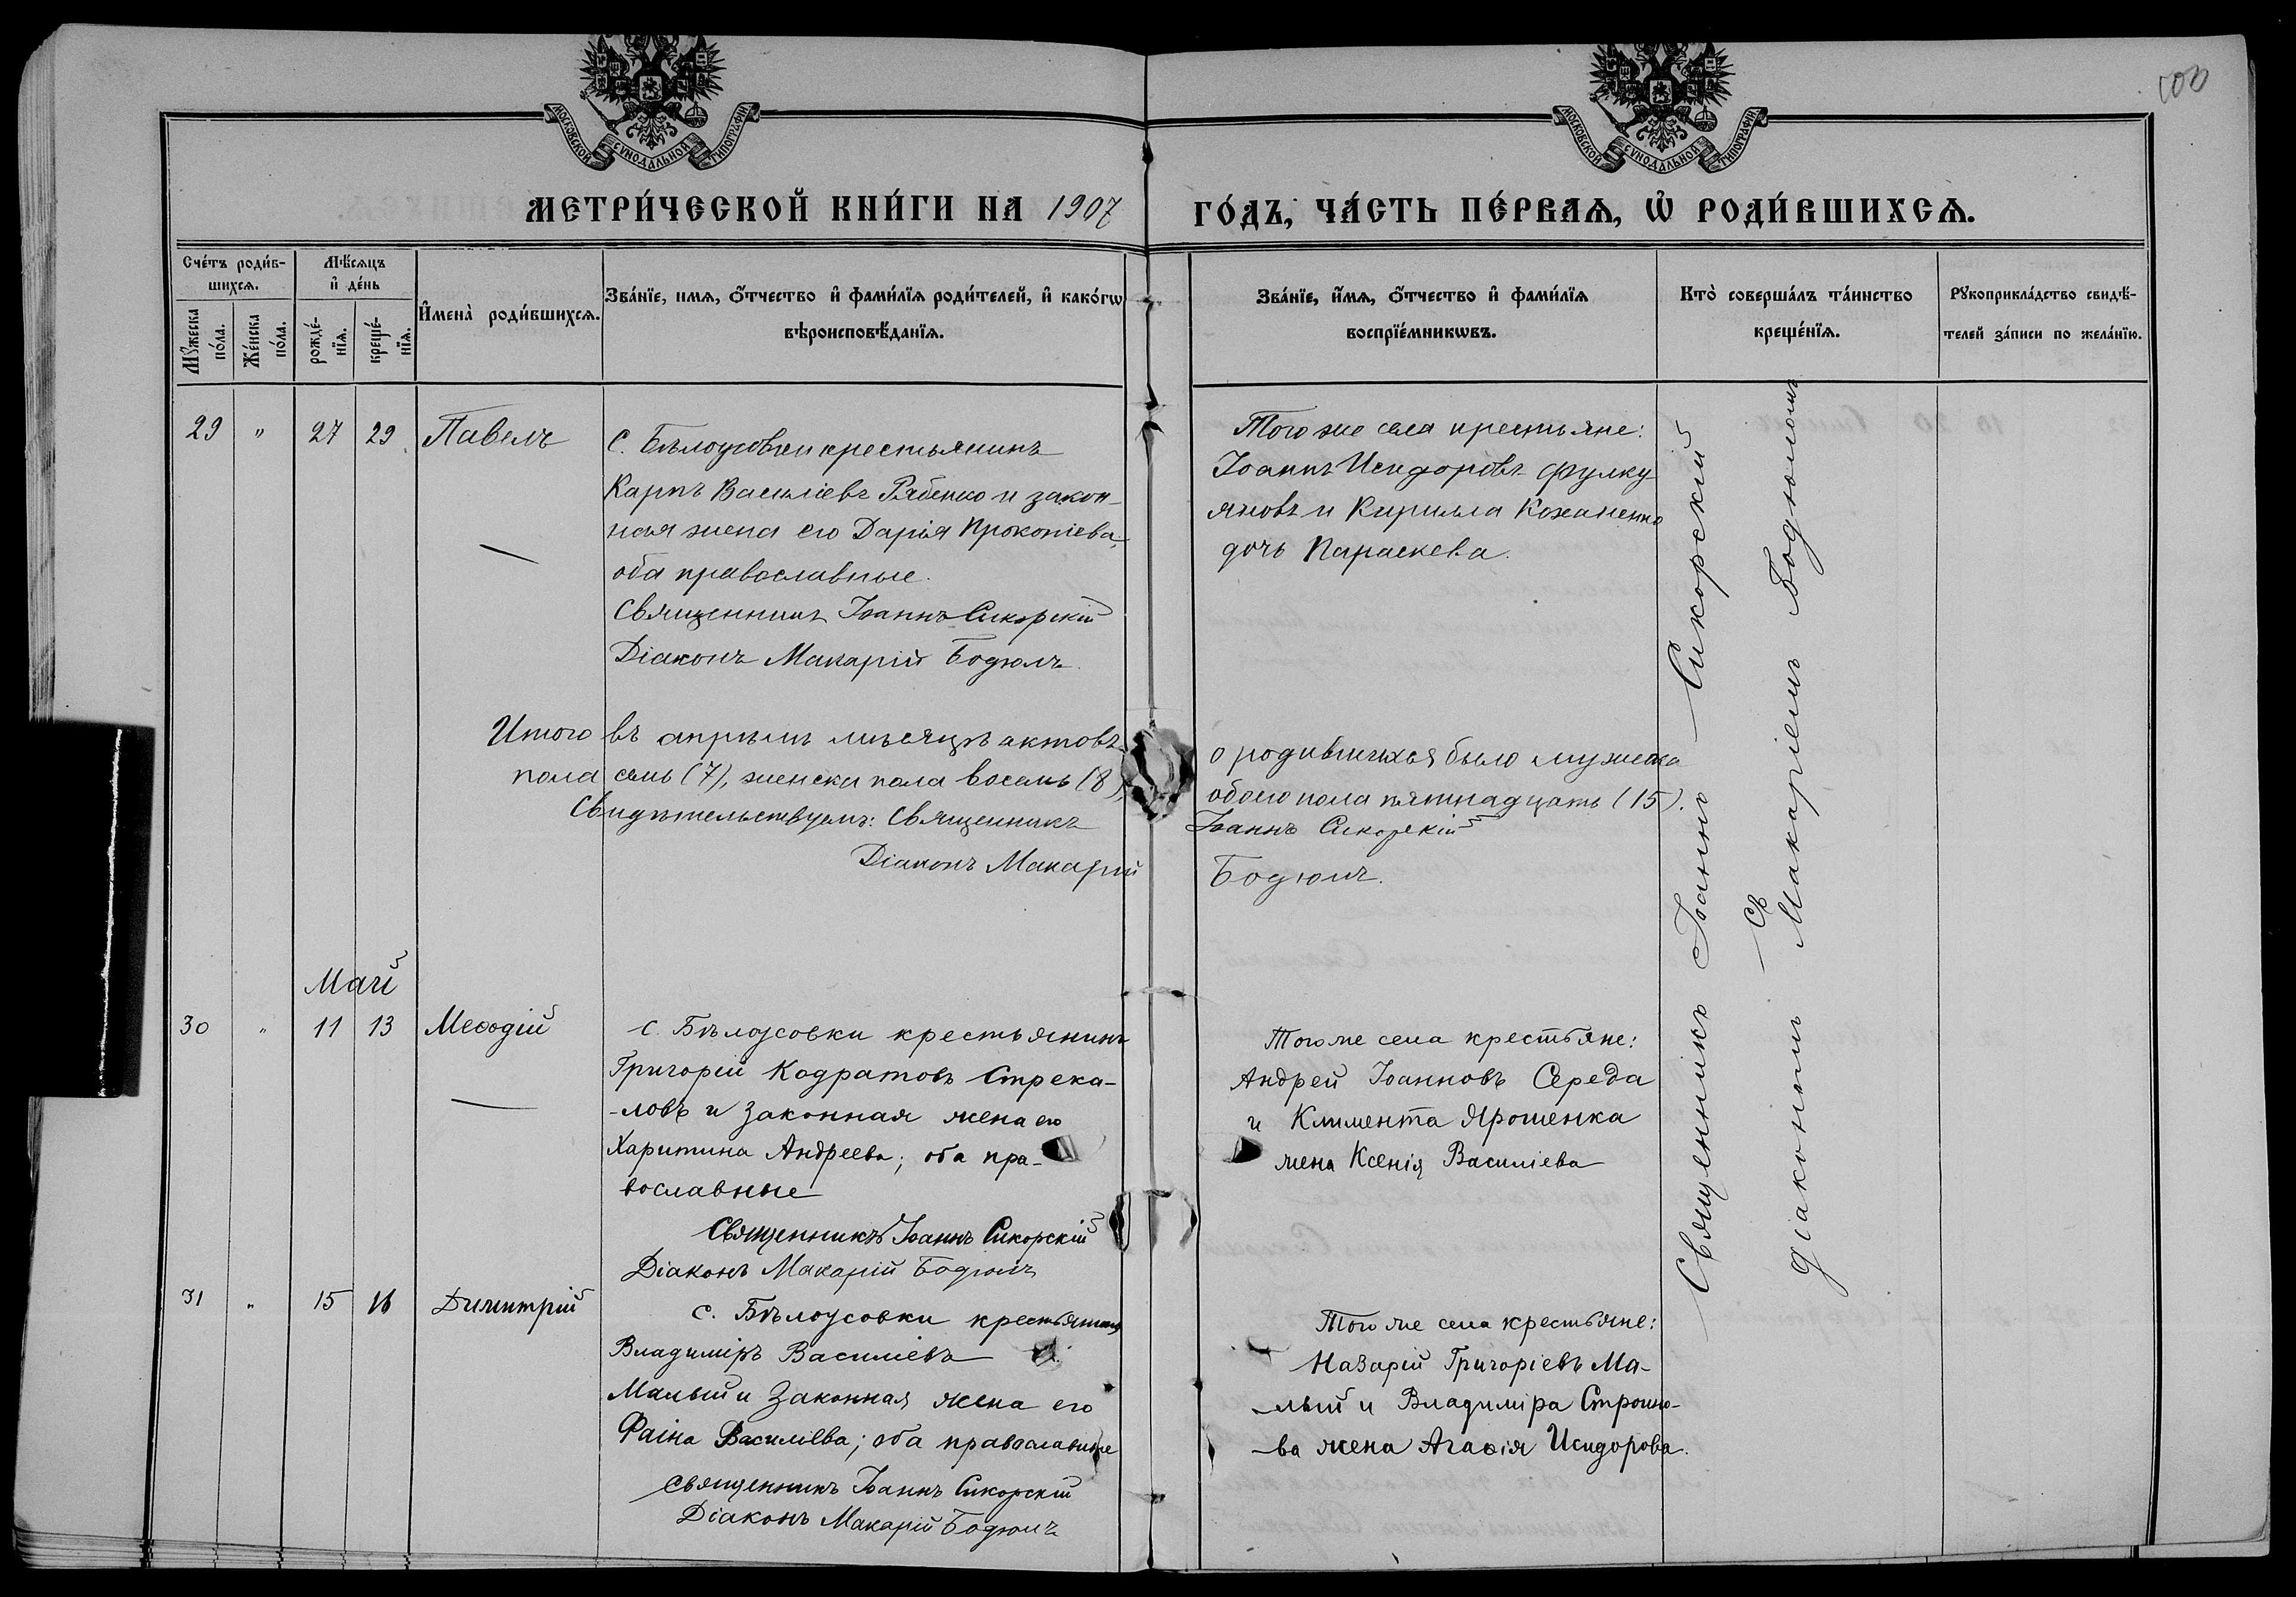 100
МОСКОВСКОЙ СѴНОДАЛЬНОЙ ТИПОГРАФІИ
МОСКОВСКОЙ СѴНОДАЛЬНОЙ ТИПОГРАФІИ
МЕТРИ́ЧЕСКОЙ КНИ́ГИ НА 1907 ГО́ДЪ, ЧА́СТЬ ПЕ́РВАѦ, Ѡ РОДИ́ВШИХСѦ.
Сче́тъ роди́в-
шихсѧ.
Мꙋ́жеска по́ла.
Же́нска по́ла.
Мѣ́сѧцъ
и҆ де́нь
рожде́-
нїѧ.
креще́-
нїѧ.
И҆мена̀ роди́вшихсѧ.
Зва́нїе, имѧ, ѻ҆́тчество и҆ фами́лїѧ роди́телей, и҆ како́гѡ
вѣроисповѣ́данїѧ.
Зва́нїе, и҆́мѧ, ѻ҆́тчество и҆ фами́лїѧ
воспрїе́мникѡвъ.
Кто̀ соверша́лъ та́инство
креще́нїѧ.
Рꙋкоприкла́дство свидѣ́-
телей за́писи по жела́нїю.
29 " 27 29 Павелъ
С. Бѣлоусовки крестьянинъ
Карпъ Василіевъ Рябенко и закон-
ная жена его Дарія Прокопіева,
оба православные.
Священникъ Іоаннъ Сикорскій
Діаконъ Макарій Бодюлъ.
Того же села крестьяне:
Іоаннъ Исидоровъ Фулку-
яновъ и Кирилла Коханенко
дочь Параскева.
Итого въ апрѣлѣ мѣсяцѣ актовъ о родившихся было мужеска
пола семь (7), женска пола восемь (8), обоего пола пятнадцать (15).
Свидѣтельствуемъ: Священникъ Іоаннъ Сикорскій
Діаконъ Макарій Бодюлъ.
Май
30 " 11 13 Меѳодій
С. Бѣлоусовки крестьянинъ
Григорій Кодратовъ Стрека-
-ловъ и законная жена его
Харитина Андреева; оба пра-
вославные
Священникъ Іоаннъ Сикорскій
Діаконъ Макарій Бодюлъ
Того же села крестьяне:
Андрей Іоанновъ Середа
и Климента Ярошенка
жена Ксенія Василіева
31 " 15 16 Димитрій
С. Бѣлоусовки крестьянинъ
Владиміръ Василіевъ
Малый и законная жена его
Фаіна Василіева; оба православные
Священникъ Іоаннъ Сикорскій
Діаконъ Макарій Бодюлъ
Того же села крестьяне:
Назарій Григоріевъ Ма-
-лый и Владиміра
-ва жена Агаѳія Исидорова.
Священникъ Іоаннъ Сикорскій
съ
діакономъ Макаріемъ Бодюломъ